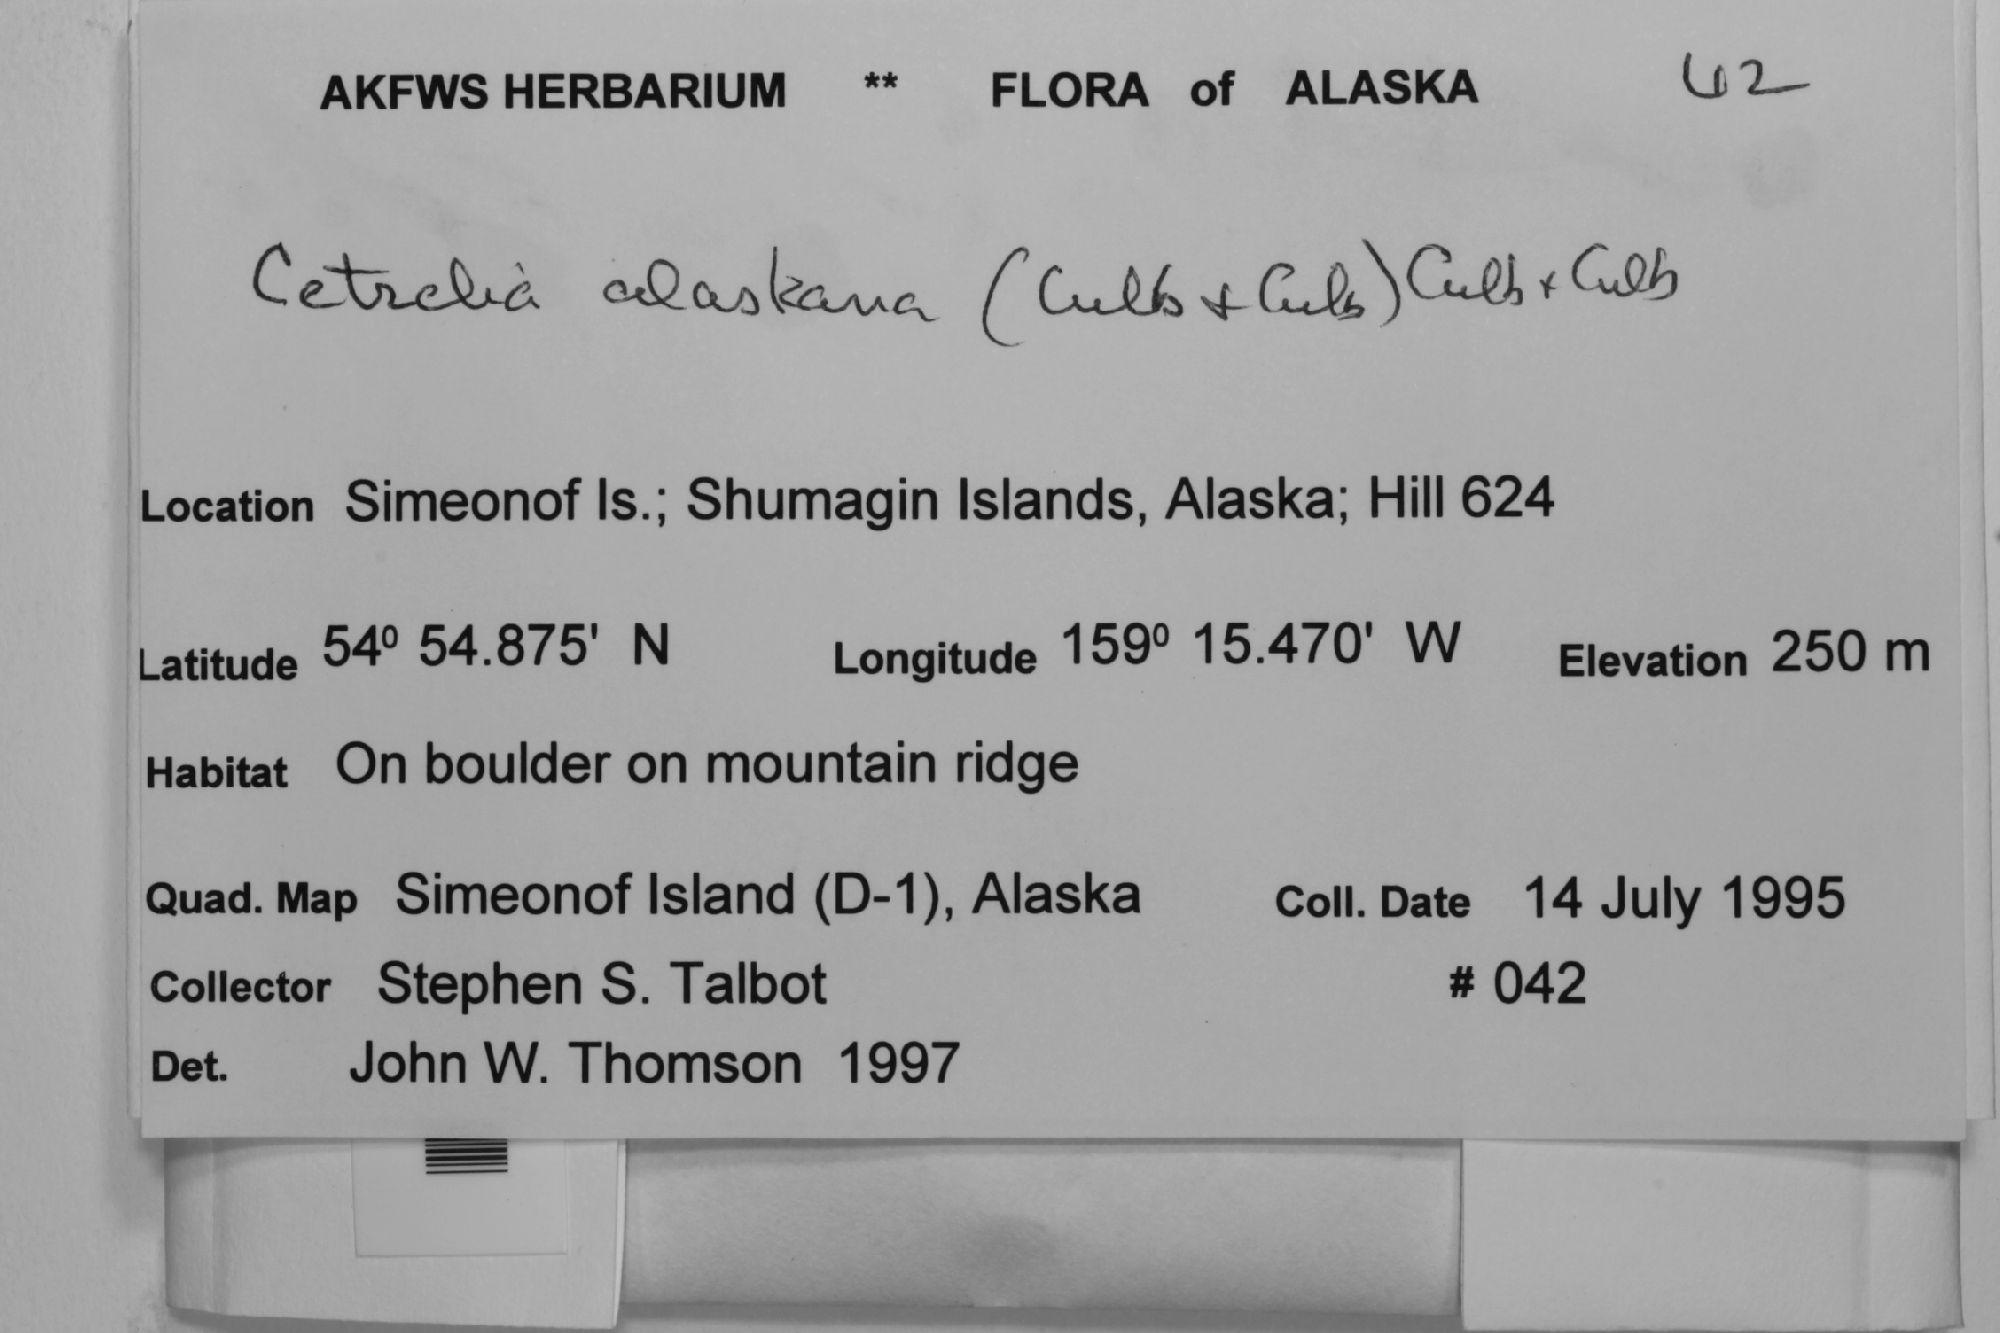 AKFWS HERBARIUM ** FLORA of ALASKA 42
Cetrelia alaskana (Culb + Culb) Culb + Culb
Location Simeonof Is.; Shumagin Islands, Alaska; Hill 624
Latitude 54⁰ 54.875' N Longitude 159⁰ 15.470' W Elevation 250 m
Habitat On boulder on mountain ridge
Quad. Map Simeonof Island (D-1), Alaska Coll. Date 14 July 1995
Collector Stephen S. Talbot # 042
Det. John W. Thomson 1997